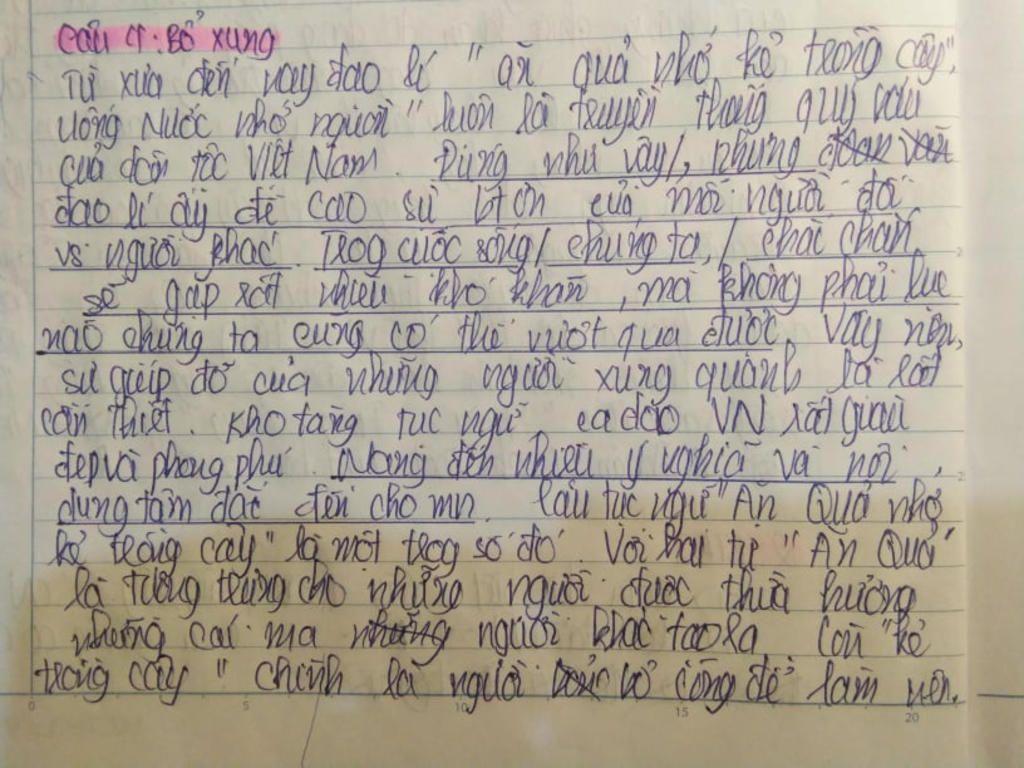 Câu 4: Bổ xung
Từ xưa đến nay đạo lí "ăn quả nhớ kẻ trồng cây",
uống nước nhớ nguồn" luôn là truyền thống quý báu
của dân tộc Việt Nam. Đúng như vậy, nhưng
đạo lí ấy đề cao sự biết ơn của mỗi người đối
vs người khác. Trog cuộc sống, chúng ta, chắc chắn
sẽ gặp rất nhiều khó khăn, mà không phải lúc
nào chúng ta cũng có thể vượt qua được. Vậy nên,
sự giúp đỡ của những người xung quanh là rất
cần thiết. Kho tàng tục ngữ, ca dao VN rất giàu
đẹp và phong phú. Mang đến nhiều ý nghĩa và nội
dung tâm đắc đến cho mn. Câu tục ngữ "Ăn Quả nhớ
kẻ trồng cây" là một trog số đó. Với hai từ "Ăn Quả"
là tượng trưng cho những người được thừa hưởng
những cái mà người khác tạo ra. Còn "kẻ
trồng cây" chính là người bỏ công để làm nên.
0 5 10 15 20